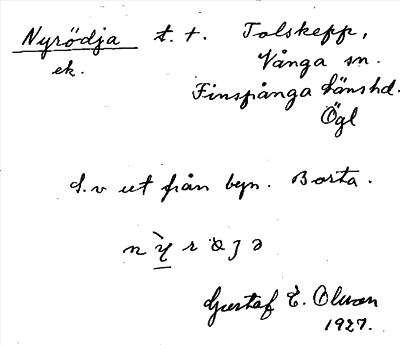 Nyrödja t. t. Tolskepp,
ek. Vånga sn.
Finspånga länshd.
Ögl
S.v ut från byn. Borta.
Gustaf E. Olsson
1927.